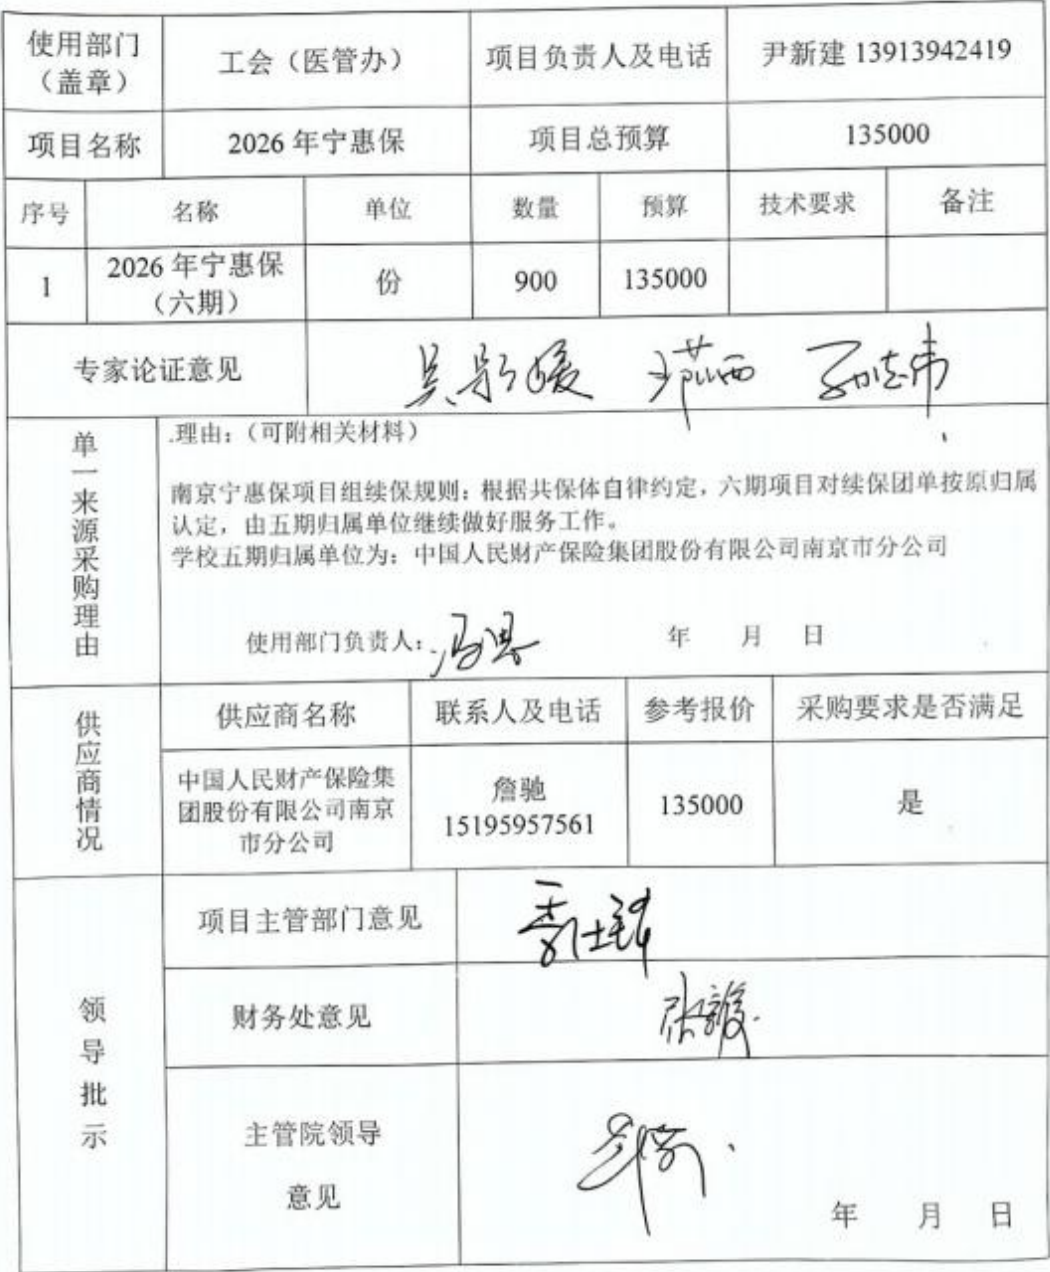 使用部门
（盖章）
工会（医管办）
项目负责人及电话
尹新建 13913942419
项目名称
2026 年宁惠保
项目总预算
135000
序号
名称
单位
数量
预算
技术要求
备注
1
2026 年宁惠保
（六期）
份
900
135000
专家论证意见
单一来源采购理由
.理由：（可附相关材料）
南京宁惠保项目组续保规则：根据共保体自律约定，六期项目对续保团单按原归属
认定，由五期归属单位继续做好服务工作。
学校五期归属单位为：中国人民财产保险集团股份有限公司南京市分公司
使用部门负责人：
年 月 日
供应商情况
供应商名称
联系人及电话
参考报价
采购要求是否满足
中国人民财产保险集
团股份有限公司南京
市分公司
詹驰
15195957561
135000
是
领导批示
项目主管部门意见
财务处意见
主管院领导
意见
年 月 日